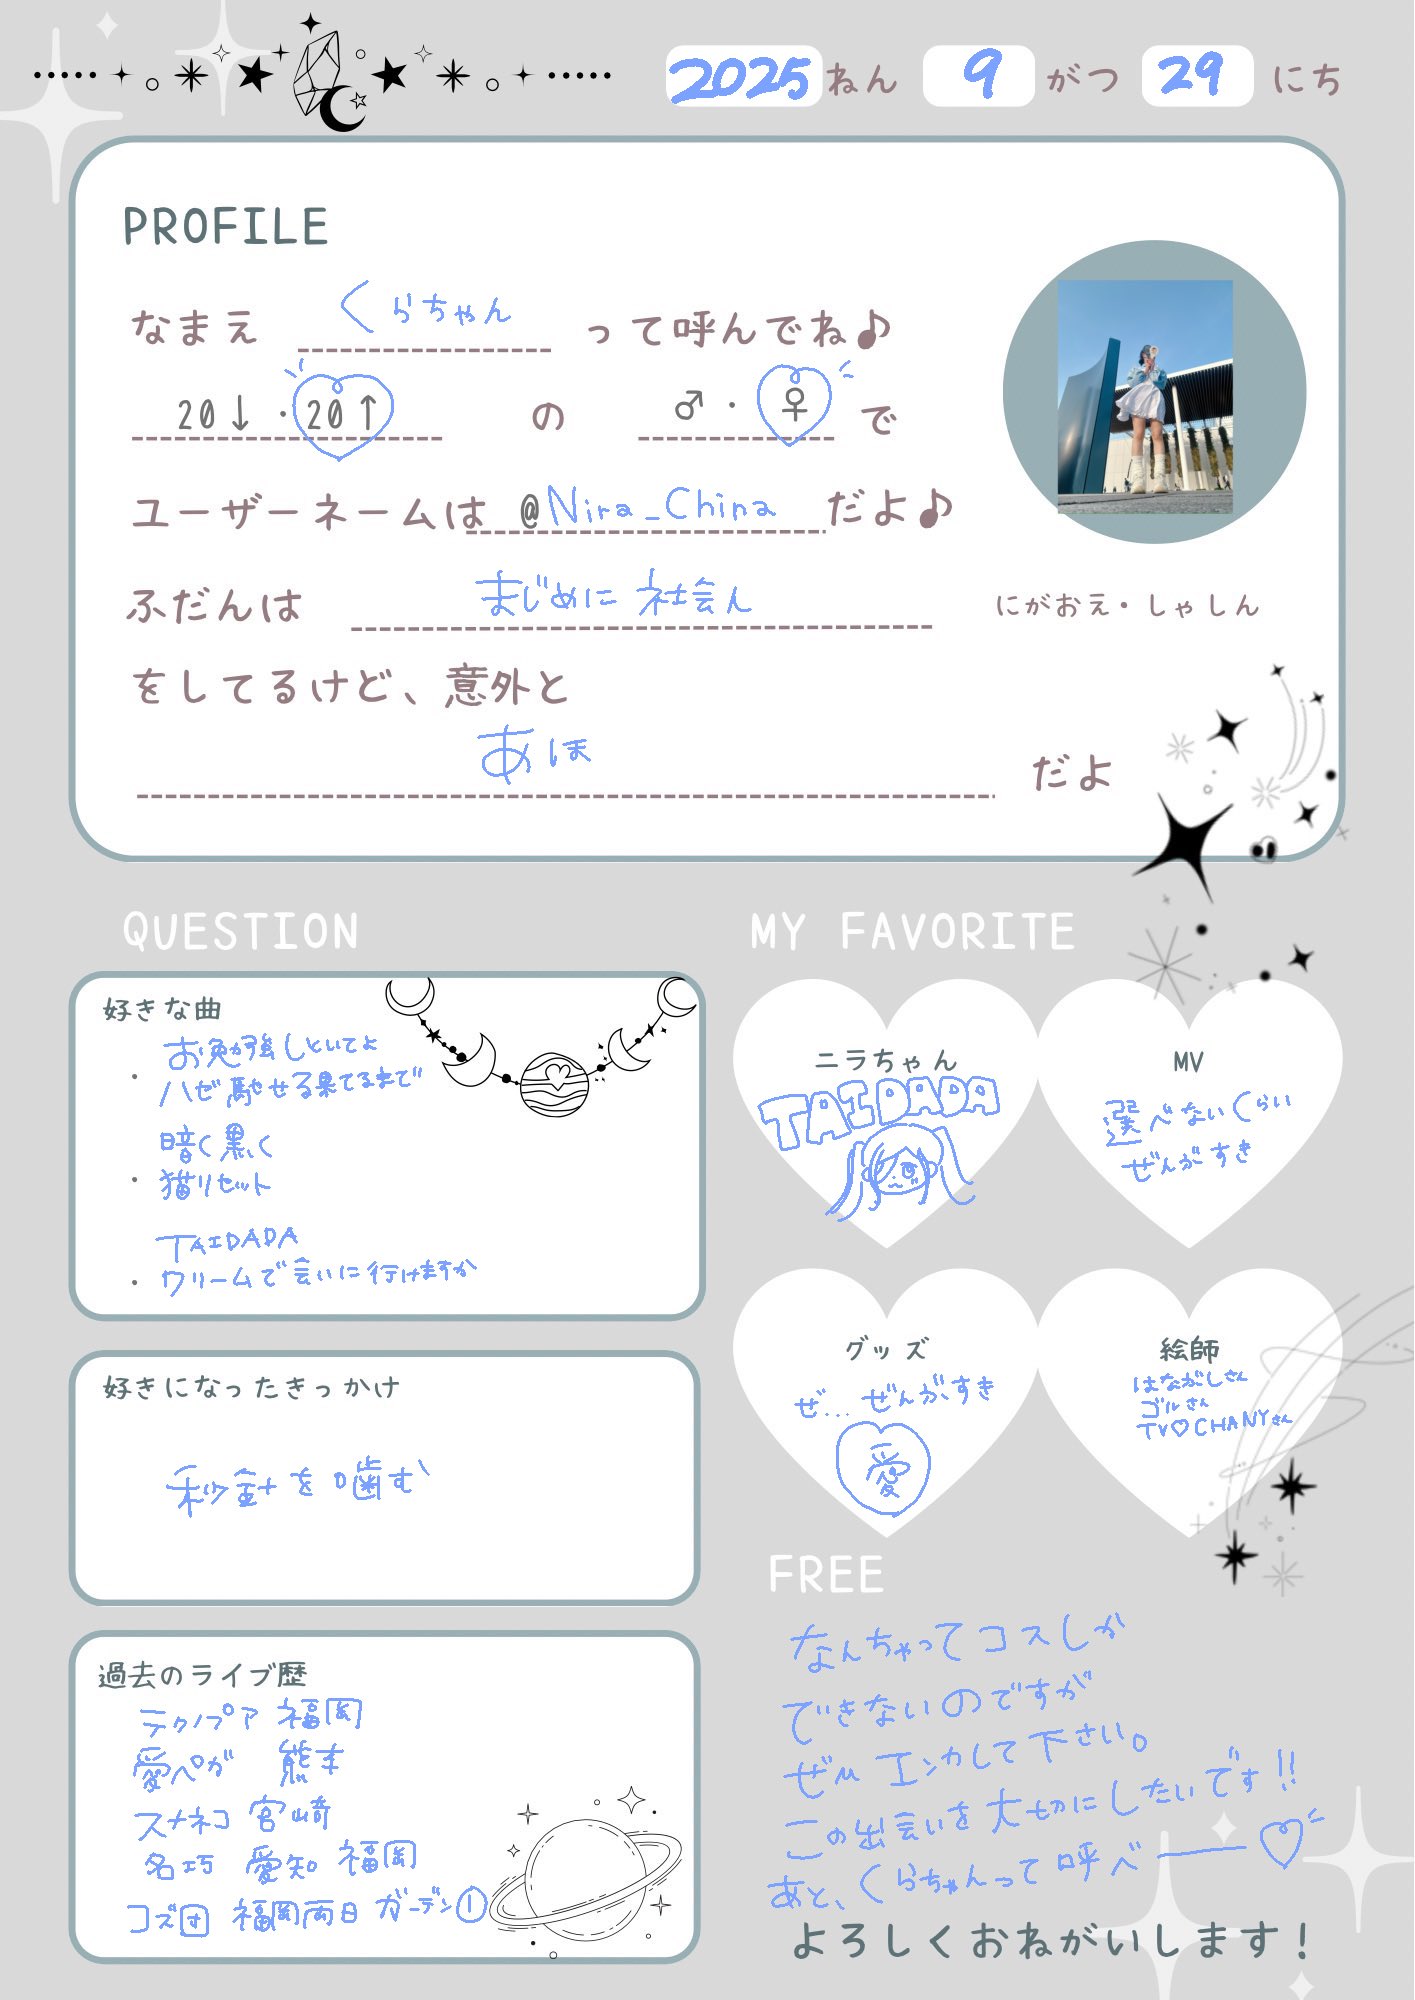 2025 ねん 9 がつ 29 にち
PROFILE
なまえ くらちゃん って呼んでね♪
20↓・20↑ の ♂・♀ で
ユーザーネームは @Nira_China だよ♪
ふだんは まじめに 社会人
にがおえ・しゃしん
をしてるけど、意外と
あほ だよ
QUESTION
好きな曲
お勉強しといてよ
・ハゼ馳せる果てるまで
暗く黒く
・猫リセット
TAIDADA
・クリームで会いに行けますか
好きになったきっかけ
秒針を噛む
過去のライブ歴
テクノプア 福岡
愛ペガ 熊本
スナネコ 宮崎
名巧 愛知 福岡
コズ団 福岡両日 ガーデン①
MY FAVORITE
ニラちゃん
TAIDADA
MV
選べないくらい
ぜんがすき
グッズ
ぜ... ぜんがすき
愛
絵師
はながしさん
ゴルさん
TV♡CHANYさん
FREE
なんちゃってコスしか
できないのですが
ぜひ エンカして下さい。
この出会いを大切にしたいです!!
あと、くらちゃんって呼べ――♡
よろしくおねがいします!